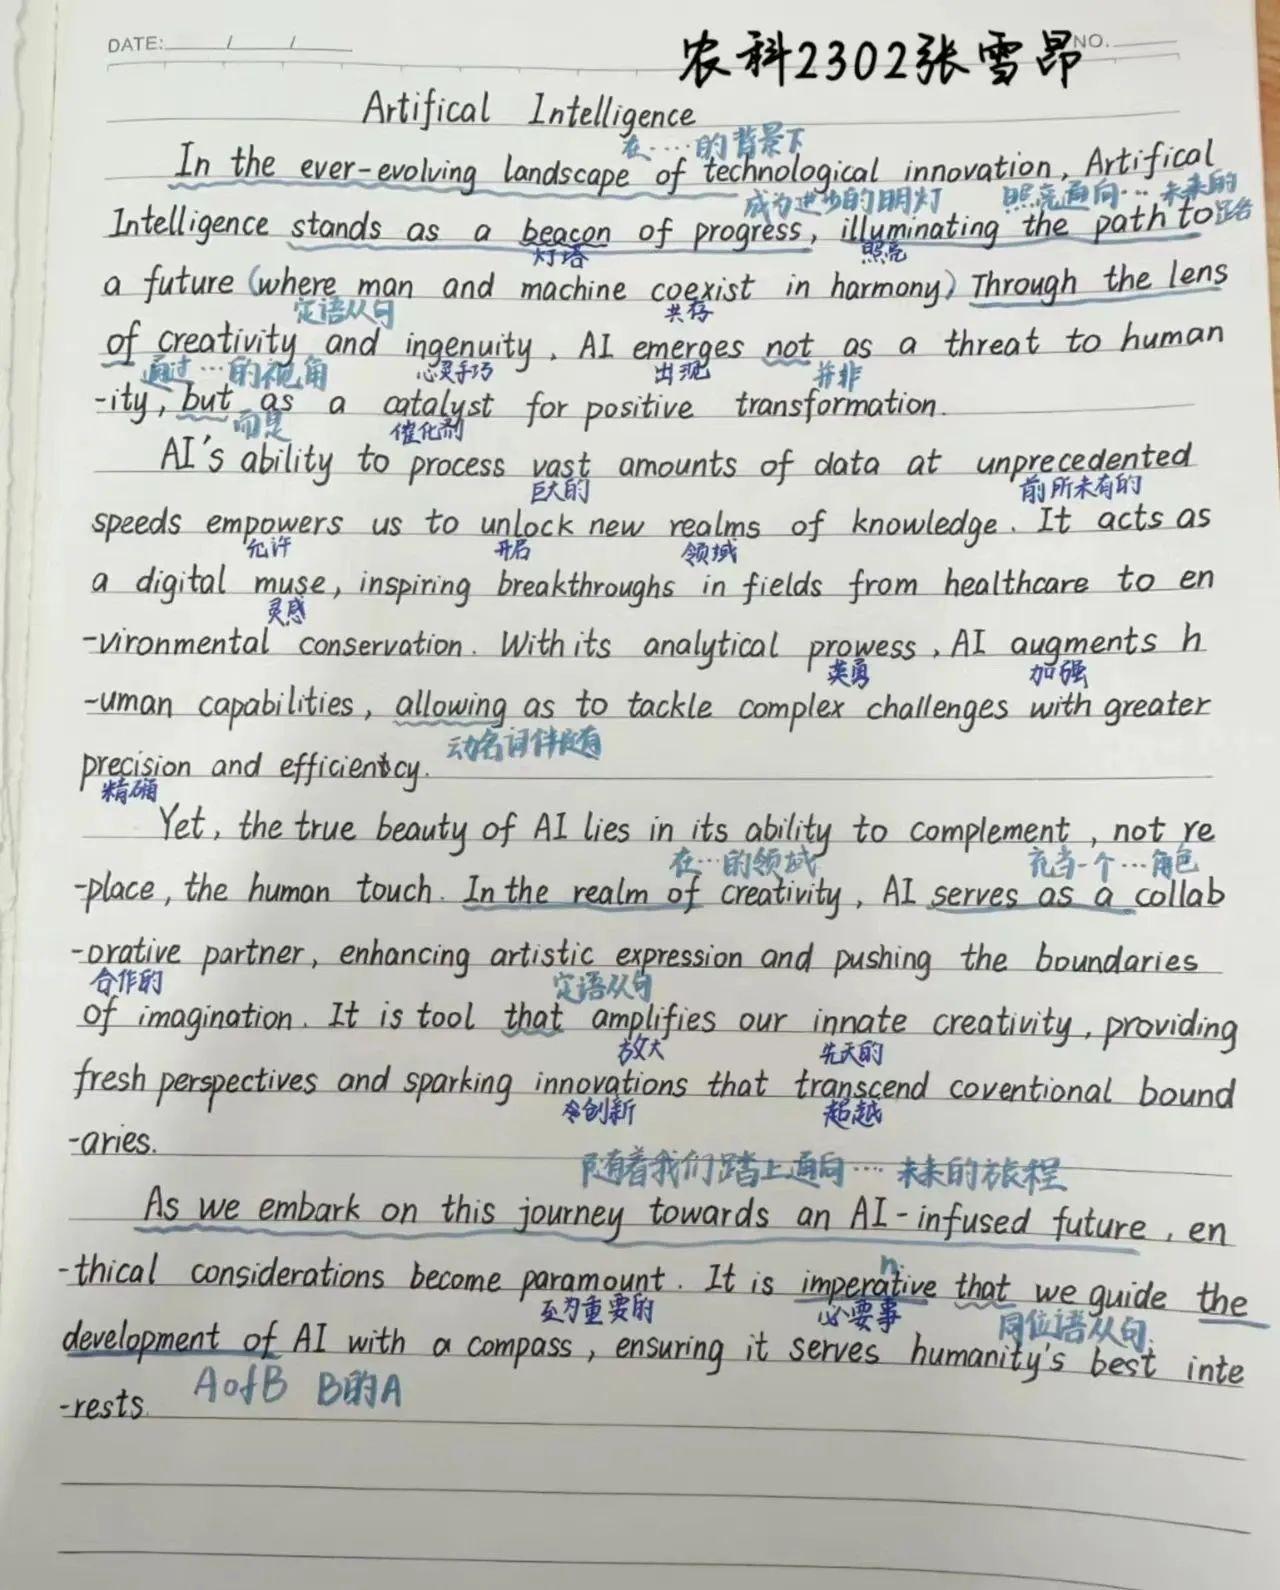 DATE: / /
NO.
农科2302张雪昂
Artifical Intelligence
在……的背景下
In the ever-evolving landscape of technological innovation, Artifical
成为进步的明灯 照亮通向…未来的
Intelligence stands as a beacon of progress, illuminating the path to
灯塔 照亮
a future (where man and machine coexist in harmony) Through the lens
定语从句 共存
of creativity and ingenuity, AI emerges not as a threat to human
通过…的视角 心灵手巧 出现 并非
-ity, but as a catalyst for positive transformation.
而是 催化剂
AI's ability to process vast amounts of data at unprecedented
巨大的 前所未有的
speeds empowers us to unlock new realms of knowledge. It acts as
允许 开启 领域
a digital muse, inspiring breakthroughs in fields from healthcare to en
灵感
-vironmental conservation. With its analytical prowess, AI augments h
英勇 加强
-uman capabilities, allowing as to tackle complex challenges with greater
动名词作
precision and efficiency.
精确
Yet, the true beauty of AI lies in its ability to complement, not re
在…的领域 充当一个…角色
-place, the human touch. In the realm of creativity, AI serves as a collab
-orative partner, enhancing artistic expression and pushing the boundaries
合作的 定语从句
of imagination. It is tool that amplifies our innate creativity, providing
放大 先天的
fresh perspectives and sparking innovations that transcend coventional bound
创新 超越
-aries.
随着我们踏上通向…未来的旅程
As we embark on this journey towards an AI-infused future, en
n.
-thical considerations become paramount. It is imperative that we guide the
至为重要的 必要事 同位语从句.
development of AI with a compass, ensuring it serves humanity's best inte
AofB B的A
-rests.